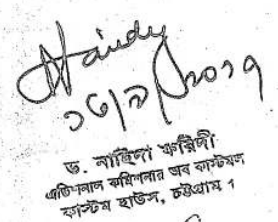 ১৩/৯/২০১৭
ড. নাহিদা ফরিদী
এডিশনাল কমিশনার অব কাস্টমস
কাস্টম হাউস, চট্টগ্রাম ।